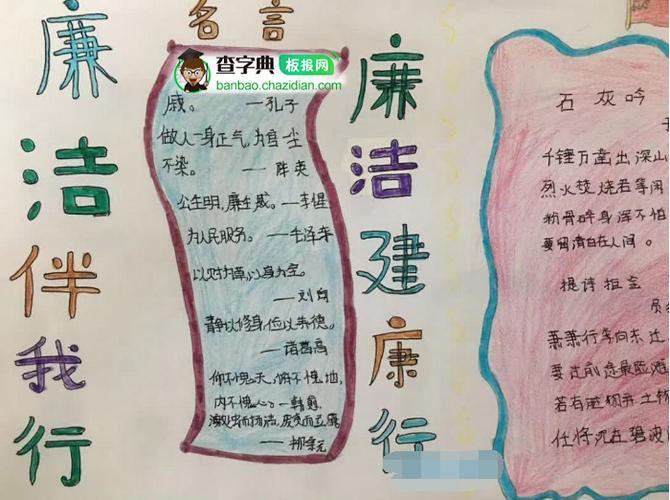 廉洁伴我行
名言
查字典 板报网
banbao.chazidian.com
戚。 —孔子
做人一身正气,为官一尘
不染。 —陈
公生明,廉生威。—李惺
为人民服务。—毛泽东
以财为草,以身为宝。
—刘向
静以修身,俭以养德。
—诸葛亮
仰不愧天,俯不愧地,
内不愧心。—韩愈
激浊而扬清,废贪而立廉
—柳宗元
廉洁建康行
石灰吟
千锤万凿出深山
烈火焚烧若等闲
粉骨碎身浑不怕
要留清白在人间。
提诗拒金
萧萧行李向东迁
要过前途最险难
若有赃物并土物
任将沉在碧波